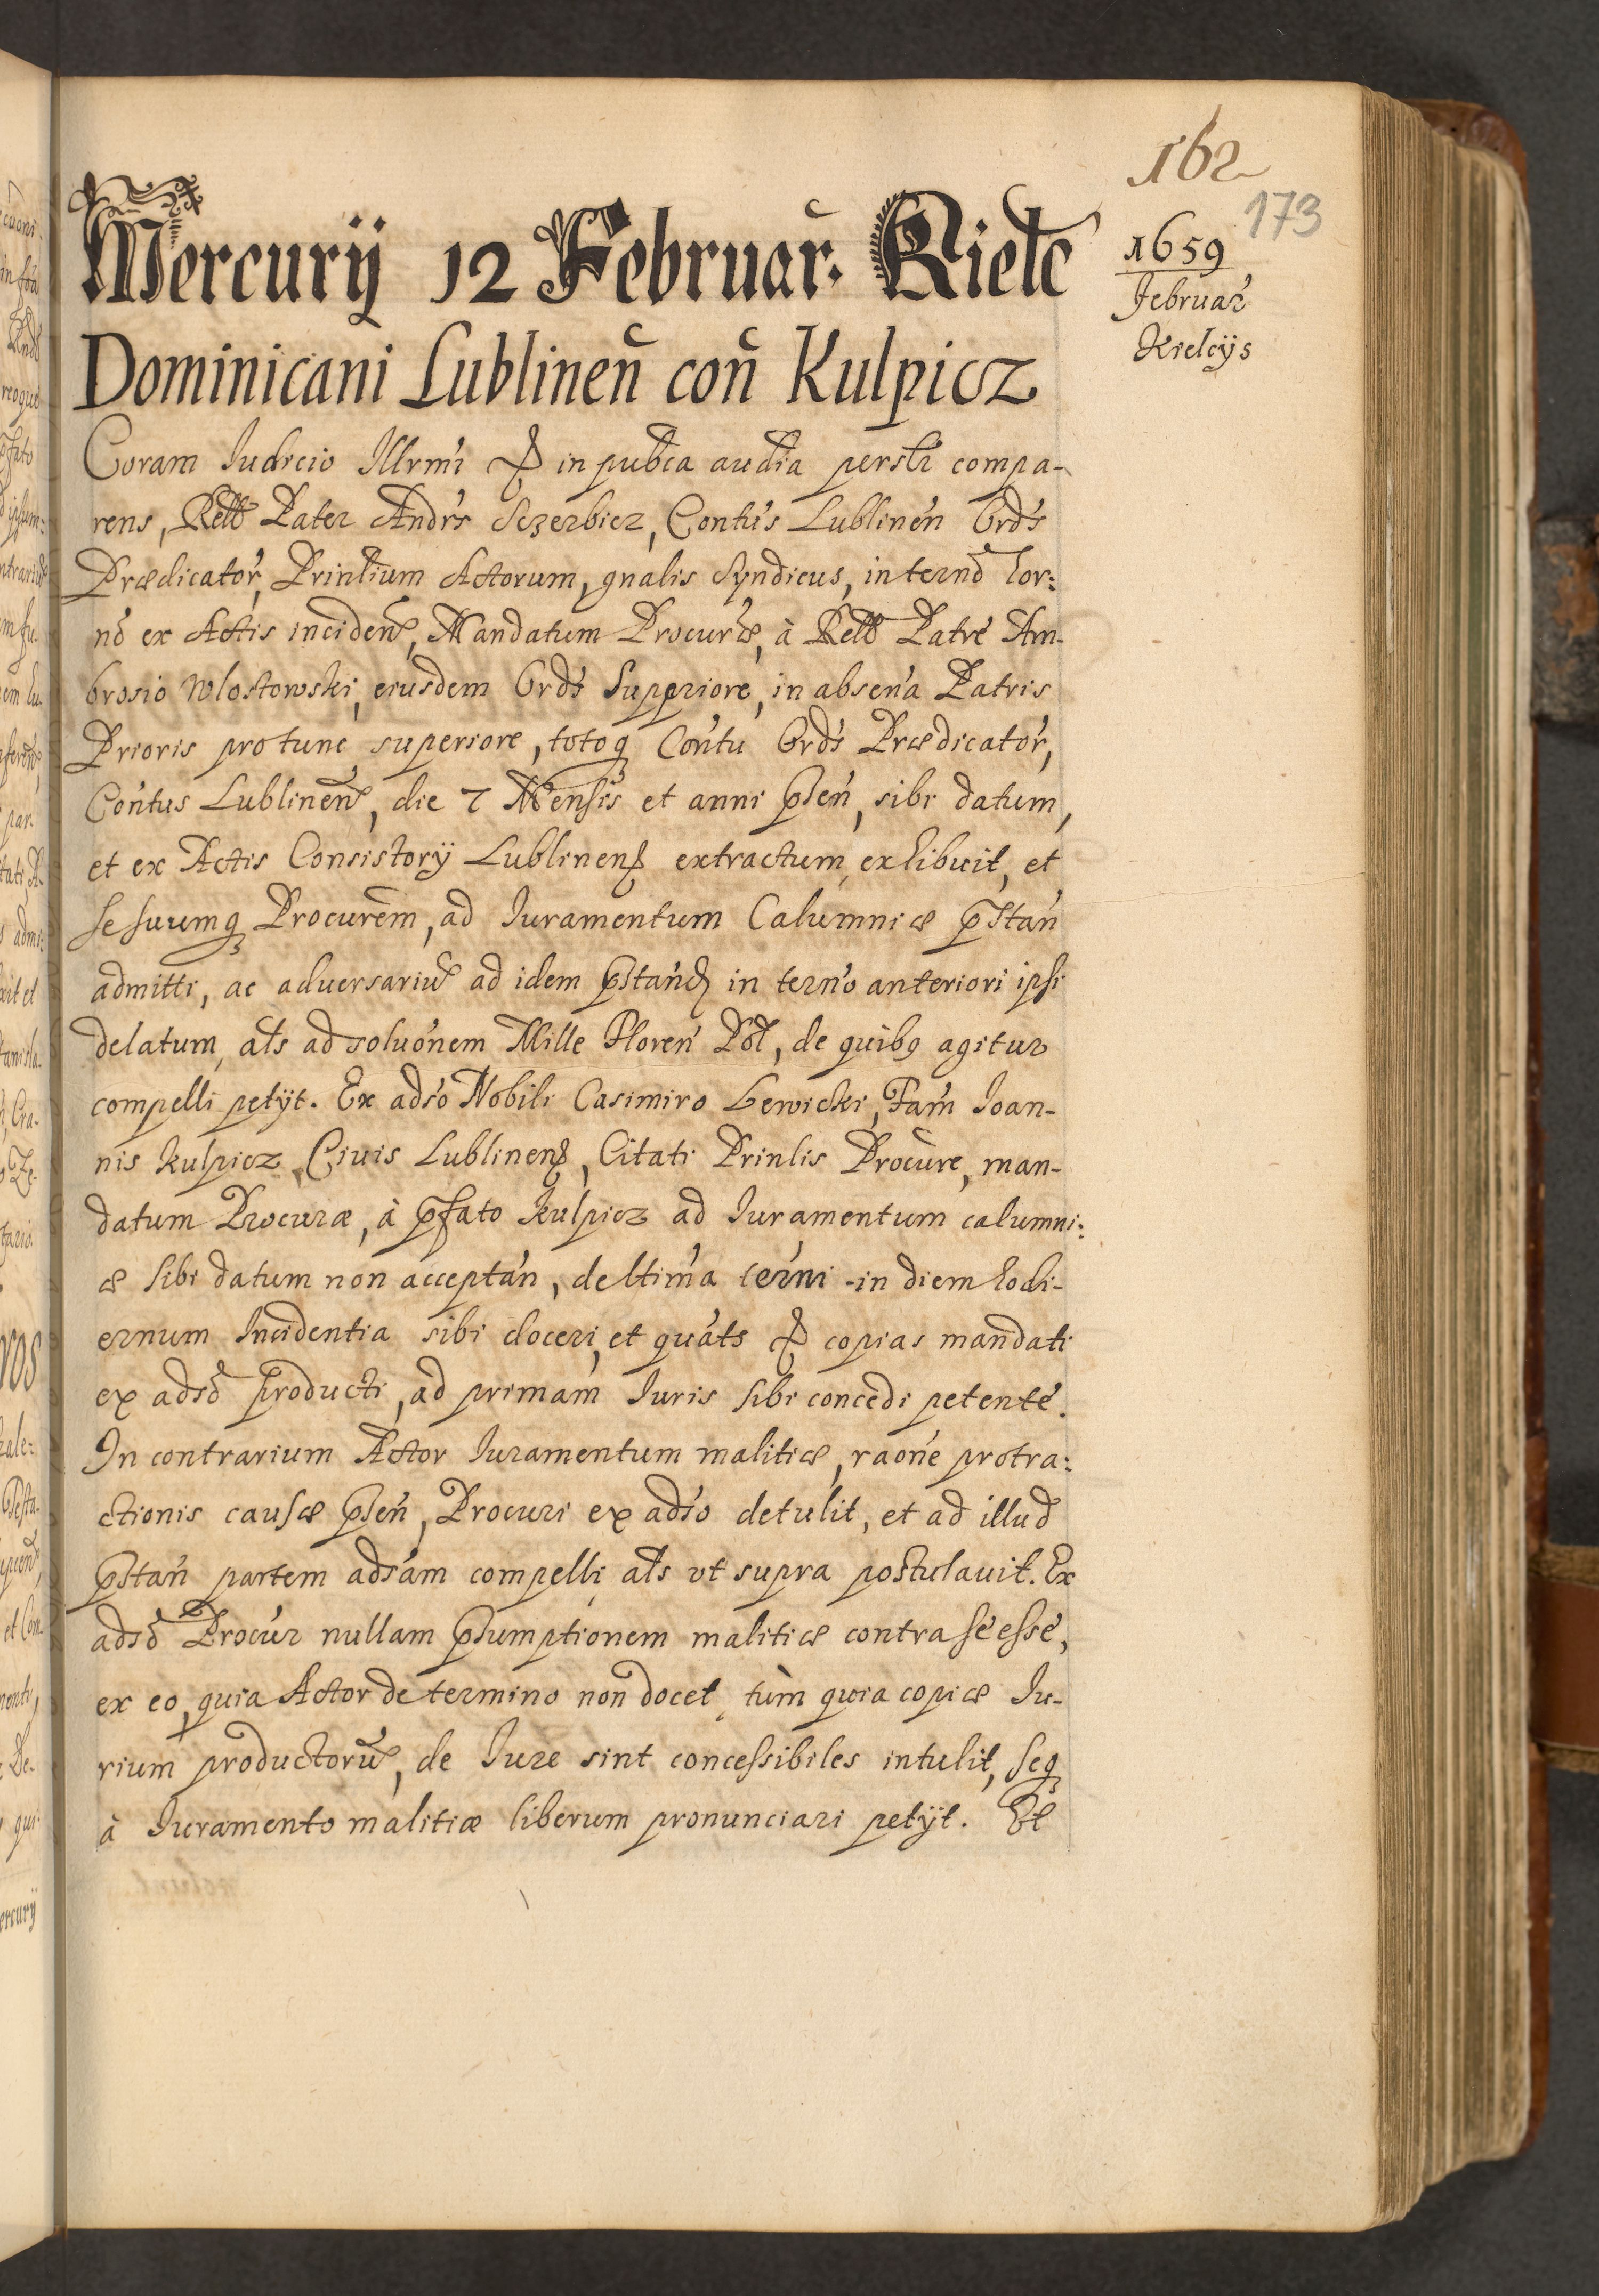 162
173
Mercurij 12 Februar. Kielc
1659
Februar
Kielcijs
Dominicani Lublinen con Kulpicz
Coram Iudicio Illrmi & in pubca audia perslr compa-
rens, Rels Pater Andrs Sczerbicz, Contus Lublinen Ords
Prædicator, Prinlium Actorum, gnalis Syndicus, in terno hor:
no ex Actis inciden, Mandatum Procuræ, à Rels Patre Am-
brosio Wlostowski, eiusdem Ords Suppriore, in absena Patris
Prioris protunc superiore, totoq Contu Ords Prædicator,
Contus Lublinen, die 7 Mensis et anni psen, sibi datum,
et ex Actis Consistorij Lublinens extractum, exhibuit, et
se suumq Procurem, ad Iuramentum Calumniæ pstan
admitti, ac aduersariu ad idem pstand in terno anteriori ipsi
delatum, als ad soluonem Mille Floren Pol, de quibq agitur
compelli petijt. Ex adso Nobili Casimiro Lewicki, Fam Ioan-
nis Kulpicz, Ciuis Lublinens, Citati Prinlis Procure, man-
datum Procuræ, à pfato Kulpicz ad Iuramentum calumni:
æ sibi datum non acceptan, de ltima terni in diem hodi-
ernum Incidentia sibi doceri, et quats & copias mandati
ex adso producti, ad primam Iuris sibi concedi petente.
In contrarium Actor Iuramentum malitiæ, raone protra:
ctionis causæ psen, Procuri ex adso detulit, et ad illud
pstan partem adsam compelli als vt supra postulauit. Ex
adso Procur nullam psumptionem malitiæ contra se esse,
ex eo, quia Actor de termino non docet, tùm quia copiæ Iu-
rium productoru, de Iure sint concessibiles intulit, seq
à Iuramento malitiæ liberum pronunciari petijt. Et